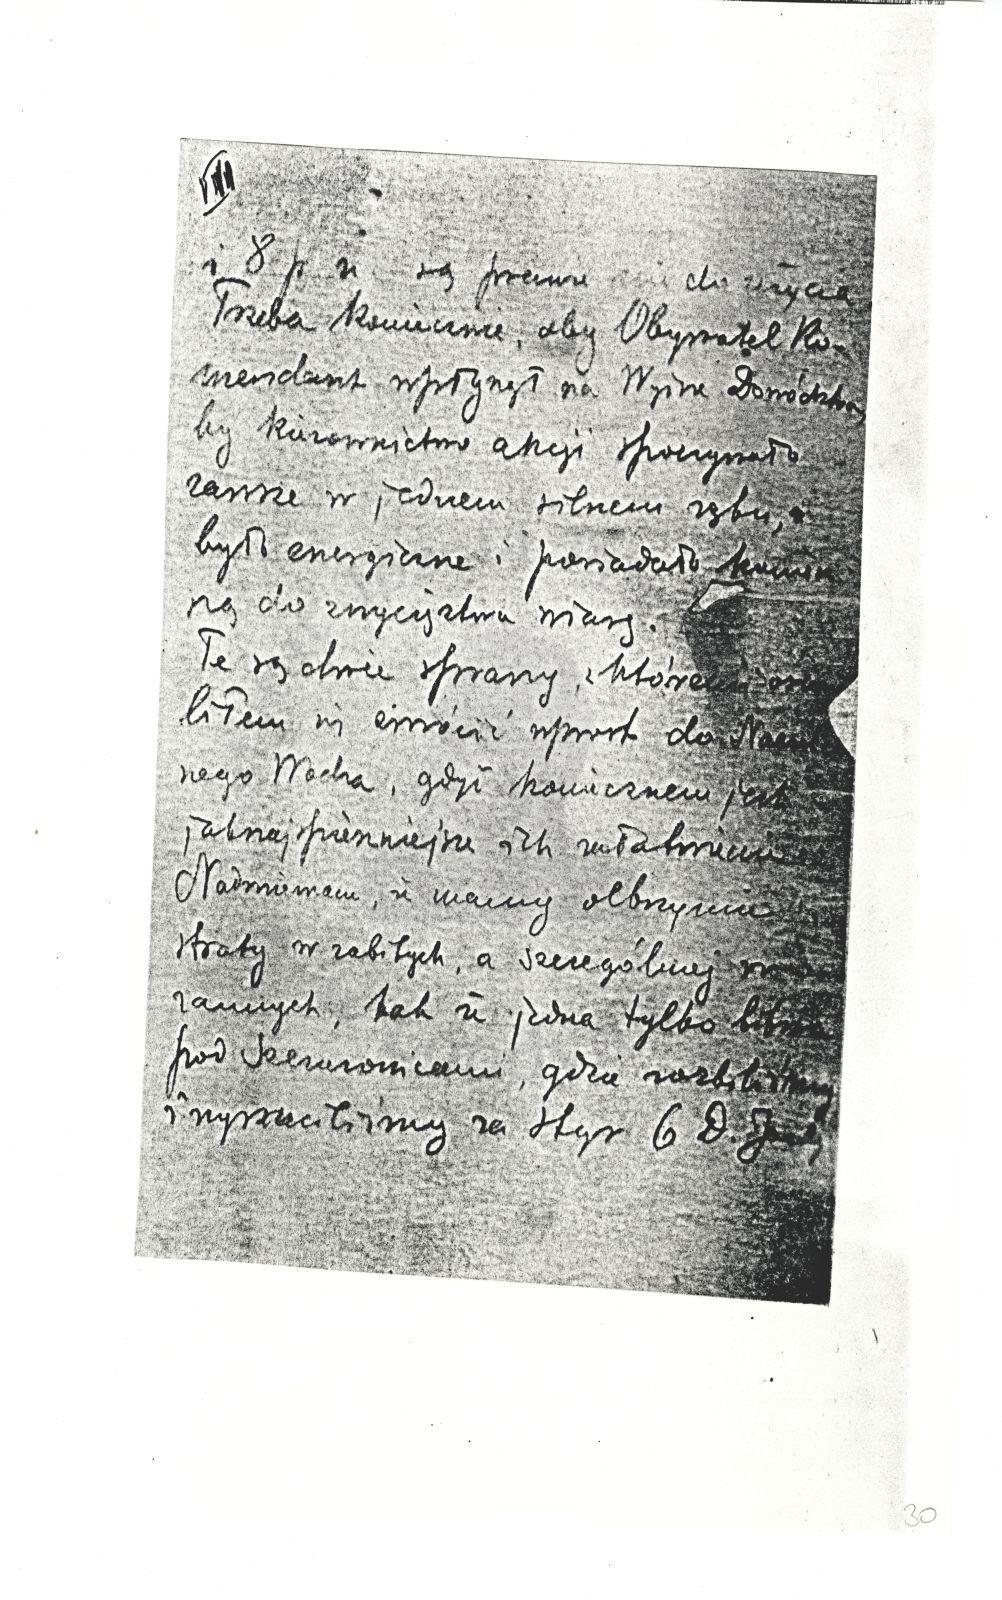 VIII
i 8 p. u. są prawie nie do użycia
Trzeba koniecznie, aby Obywatel Ko-
mendant wpłynął na Wyższe Dowództwa,
by kierownictwo akcji spoczywało
zawsze w jednem silnem ręku,
było energiczne i posiadało koniecz
ną do zwycięztwa wiarę.
Te są dwie sprawy, z któremi
liłem się zwrócić wprost do Naczel
nego Wodza, gdyż koniecznem jest
jaknajspieszniejsze ich załatwienie
Nadmieniam, że mamy olbrzymie
straty w zabitych, a szczególniej w
rannych, tak że jedna tylko bitwa
pod Szczurowicami, gdzie rozbiliśmy
i wyrzuciliśmy za Styr 6 D.
30